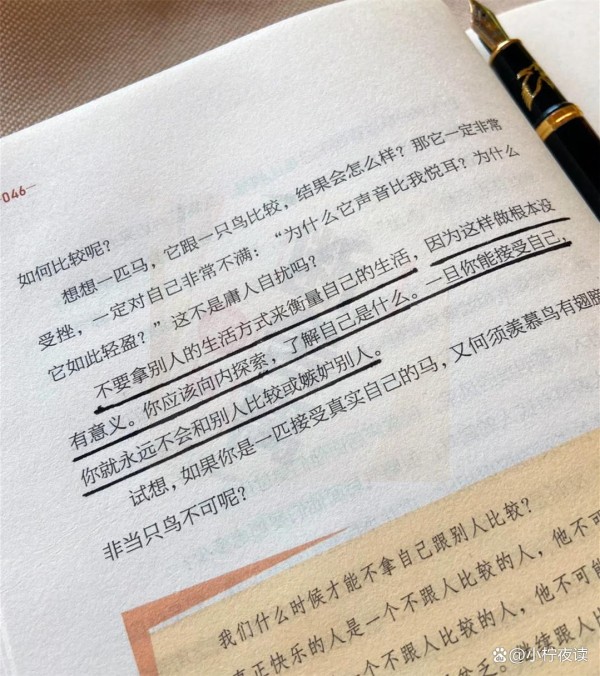 046
如何比较呢?
想想一匹马,它跟一只鸟比较,结果会怎么样?那它一定非常
受挫,一定对自己非常不满:“为什么它声音比我悦耳?为什么
它如此轻盈?”这不是庸人自扰吗?
不要拿别人的生活方式来衡量自己的生活,因为这样做根本没
有意义。你应该向内探索,了解自己是什么。一旦你能接受自己,
你就永远不会和别人比较或嫉妒别人。
试想,如果你是一匹接受真实自己的马,又何须羡慕鸟有翅膀
非当只鸟不可呢?
我们什么时候才能不拿自己跟别人比较?
真正快乐的人是一个不跟人比较的人,他不可
个不跟人比较的人,他不可能
贫乏。继续跟人比
小柠夜读